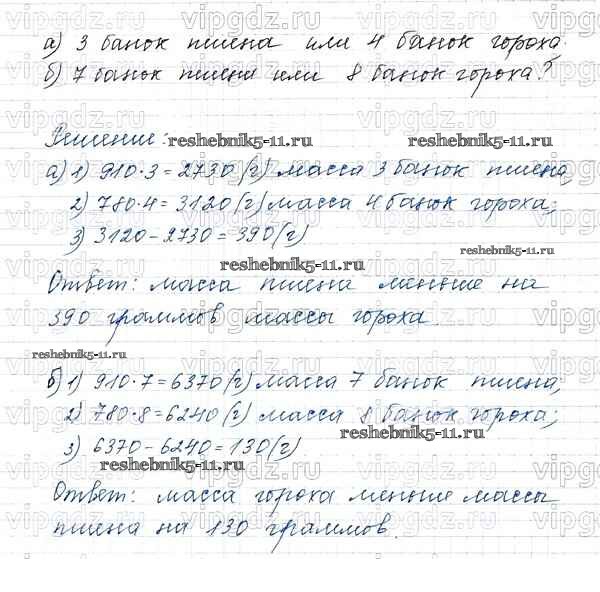 а) 3 банок пшена или 4 банок гороха.
б) 7 банок пшена или 8 банок гороха?
Решение:
reshebnik5-11.ru
reshebnik5-11.ru
а) 1) 910·3=2730 (г) масса 3 банок пшена;
2) 780·4=3120 (г) масса 4 банок гороха;
3) 3120-2730=390 (г)
reshebnik5-11.ru
reshebnik5-11.ru
Ответ: масса пшена меньше на
390 граммов массы гороха.
reshebnik5-11.ru
б) 1) 910·7=6370 (г) масса 7 банок пшена;
2) 780·8=6240 (г) масса 8 банок гороха;
reshebnik5-11.ru
3) 6370-6240=130 (г)
reshebnik5-11.ru
Ответ: масса гороха меньше массы
пшена на 130 граммов.
vipgdz.ru